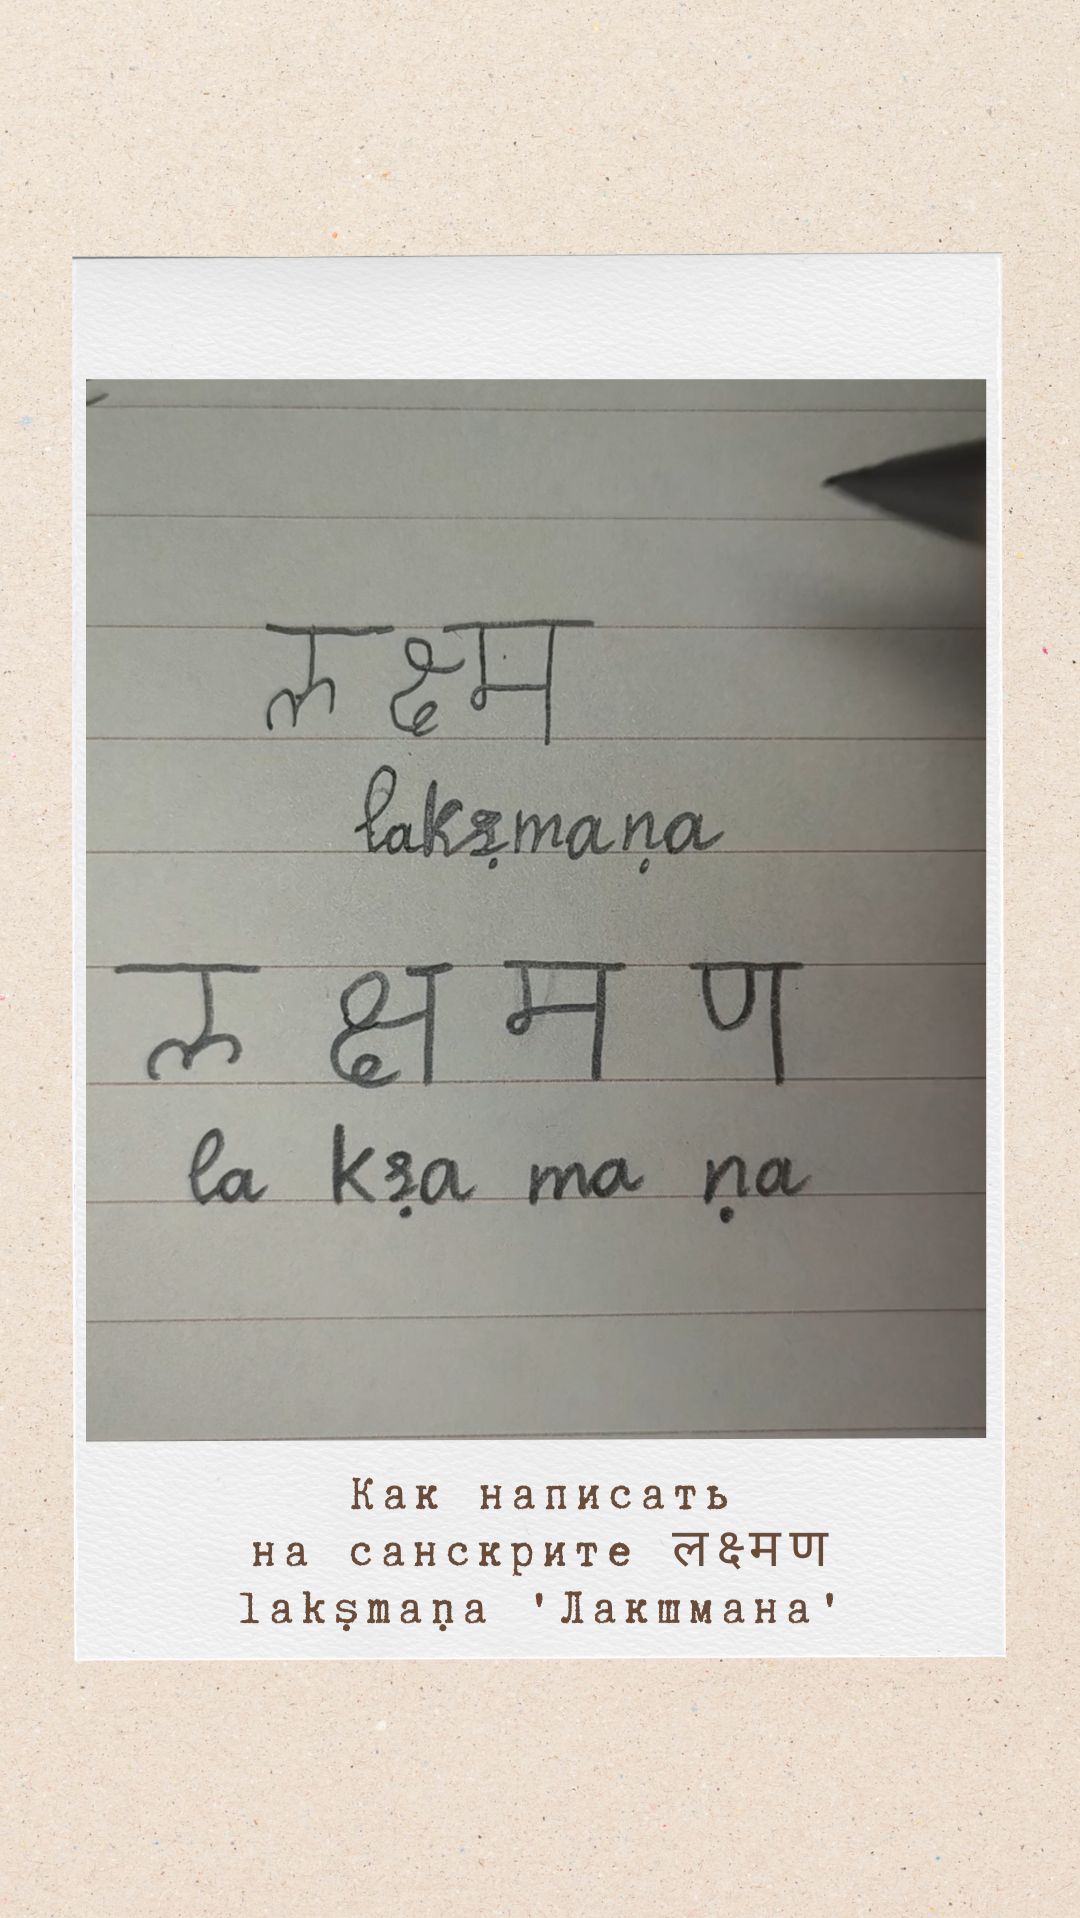 लक्ष्म
lakṣmaṇa
ल क्ष म ण
la kṣa ma ṇa
Как написать
на санскрите लक्ष्मण
lakṣmaṇa 'Лакшмана'